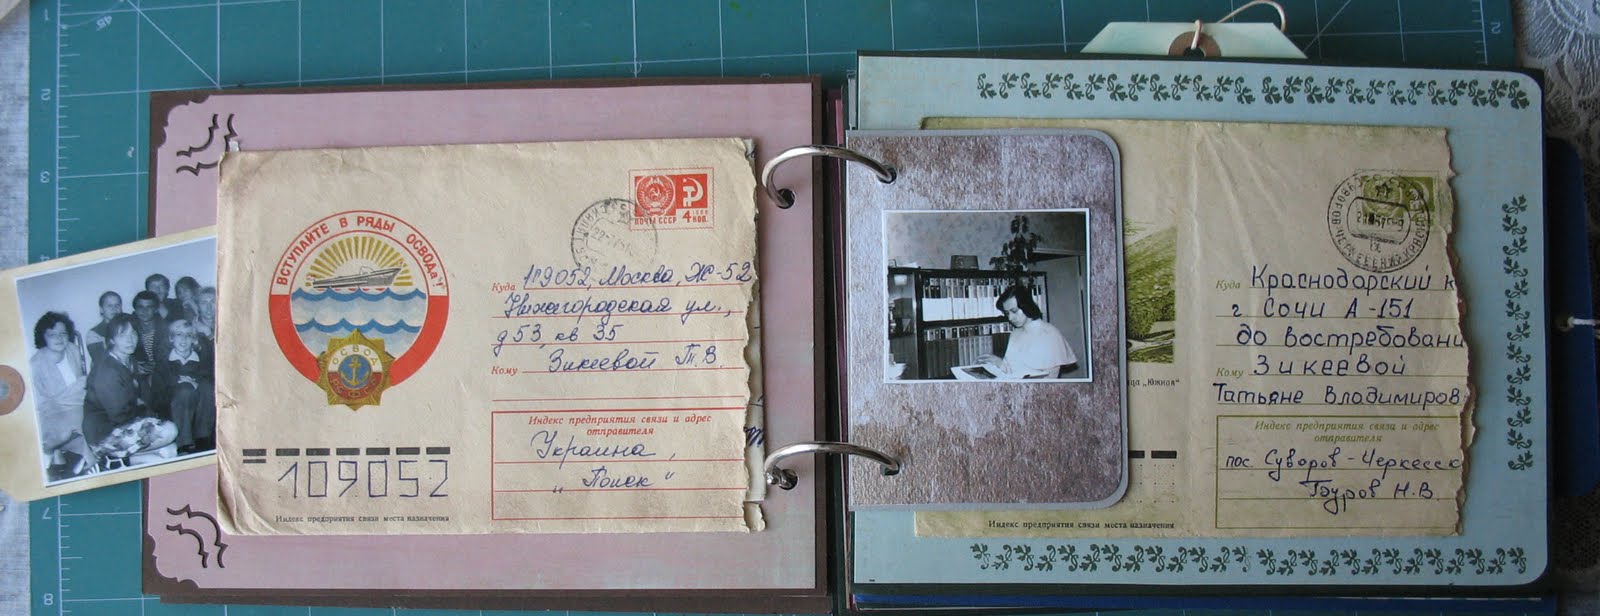 ВСТУПАЙТЕ В РЯДЫ ОСВОДа!
ОСВОД
ПОЧТА СССР
4 коп.
Куда 109052, Москва, Ж-52
Нижегородская ул.,
д 53, кв 35
Кому Зикеевой Т. В.
Индекс предприятия связи и адрес
отправителя
Украина,
„Поиск“
109052
Индекс предприятия связи места назначения
Куда Краснодарский к
г Сочи А-151
до востребовани
Кому Зикеевой
Татьяне Владимиров
„Южная“
Индекс предприятия связи и адрес
отправителя
пос. Суворов-Черкесск
Гоуров Н.В.
Индекс предприятия связи места назначения
1
2
3
7
2